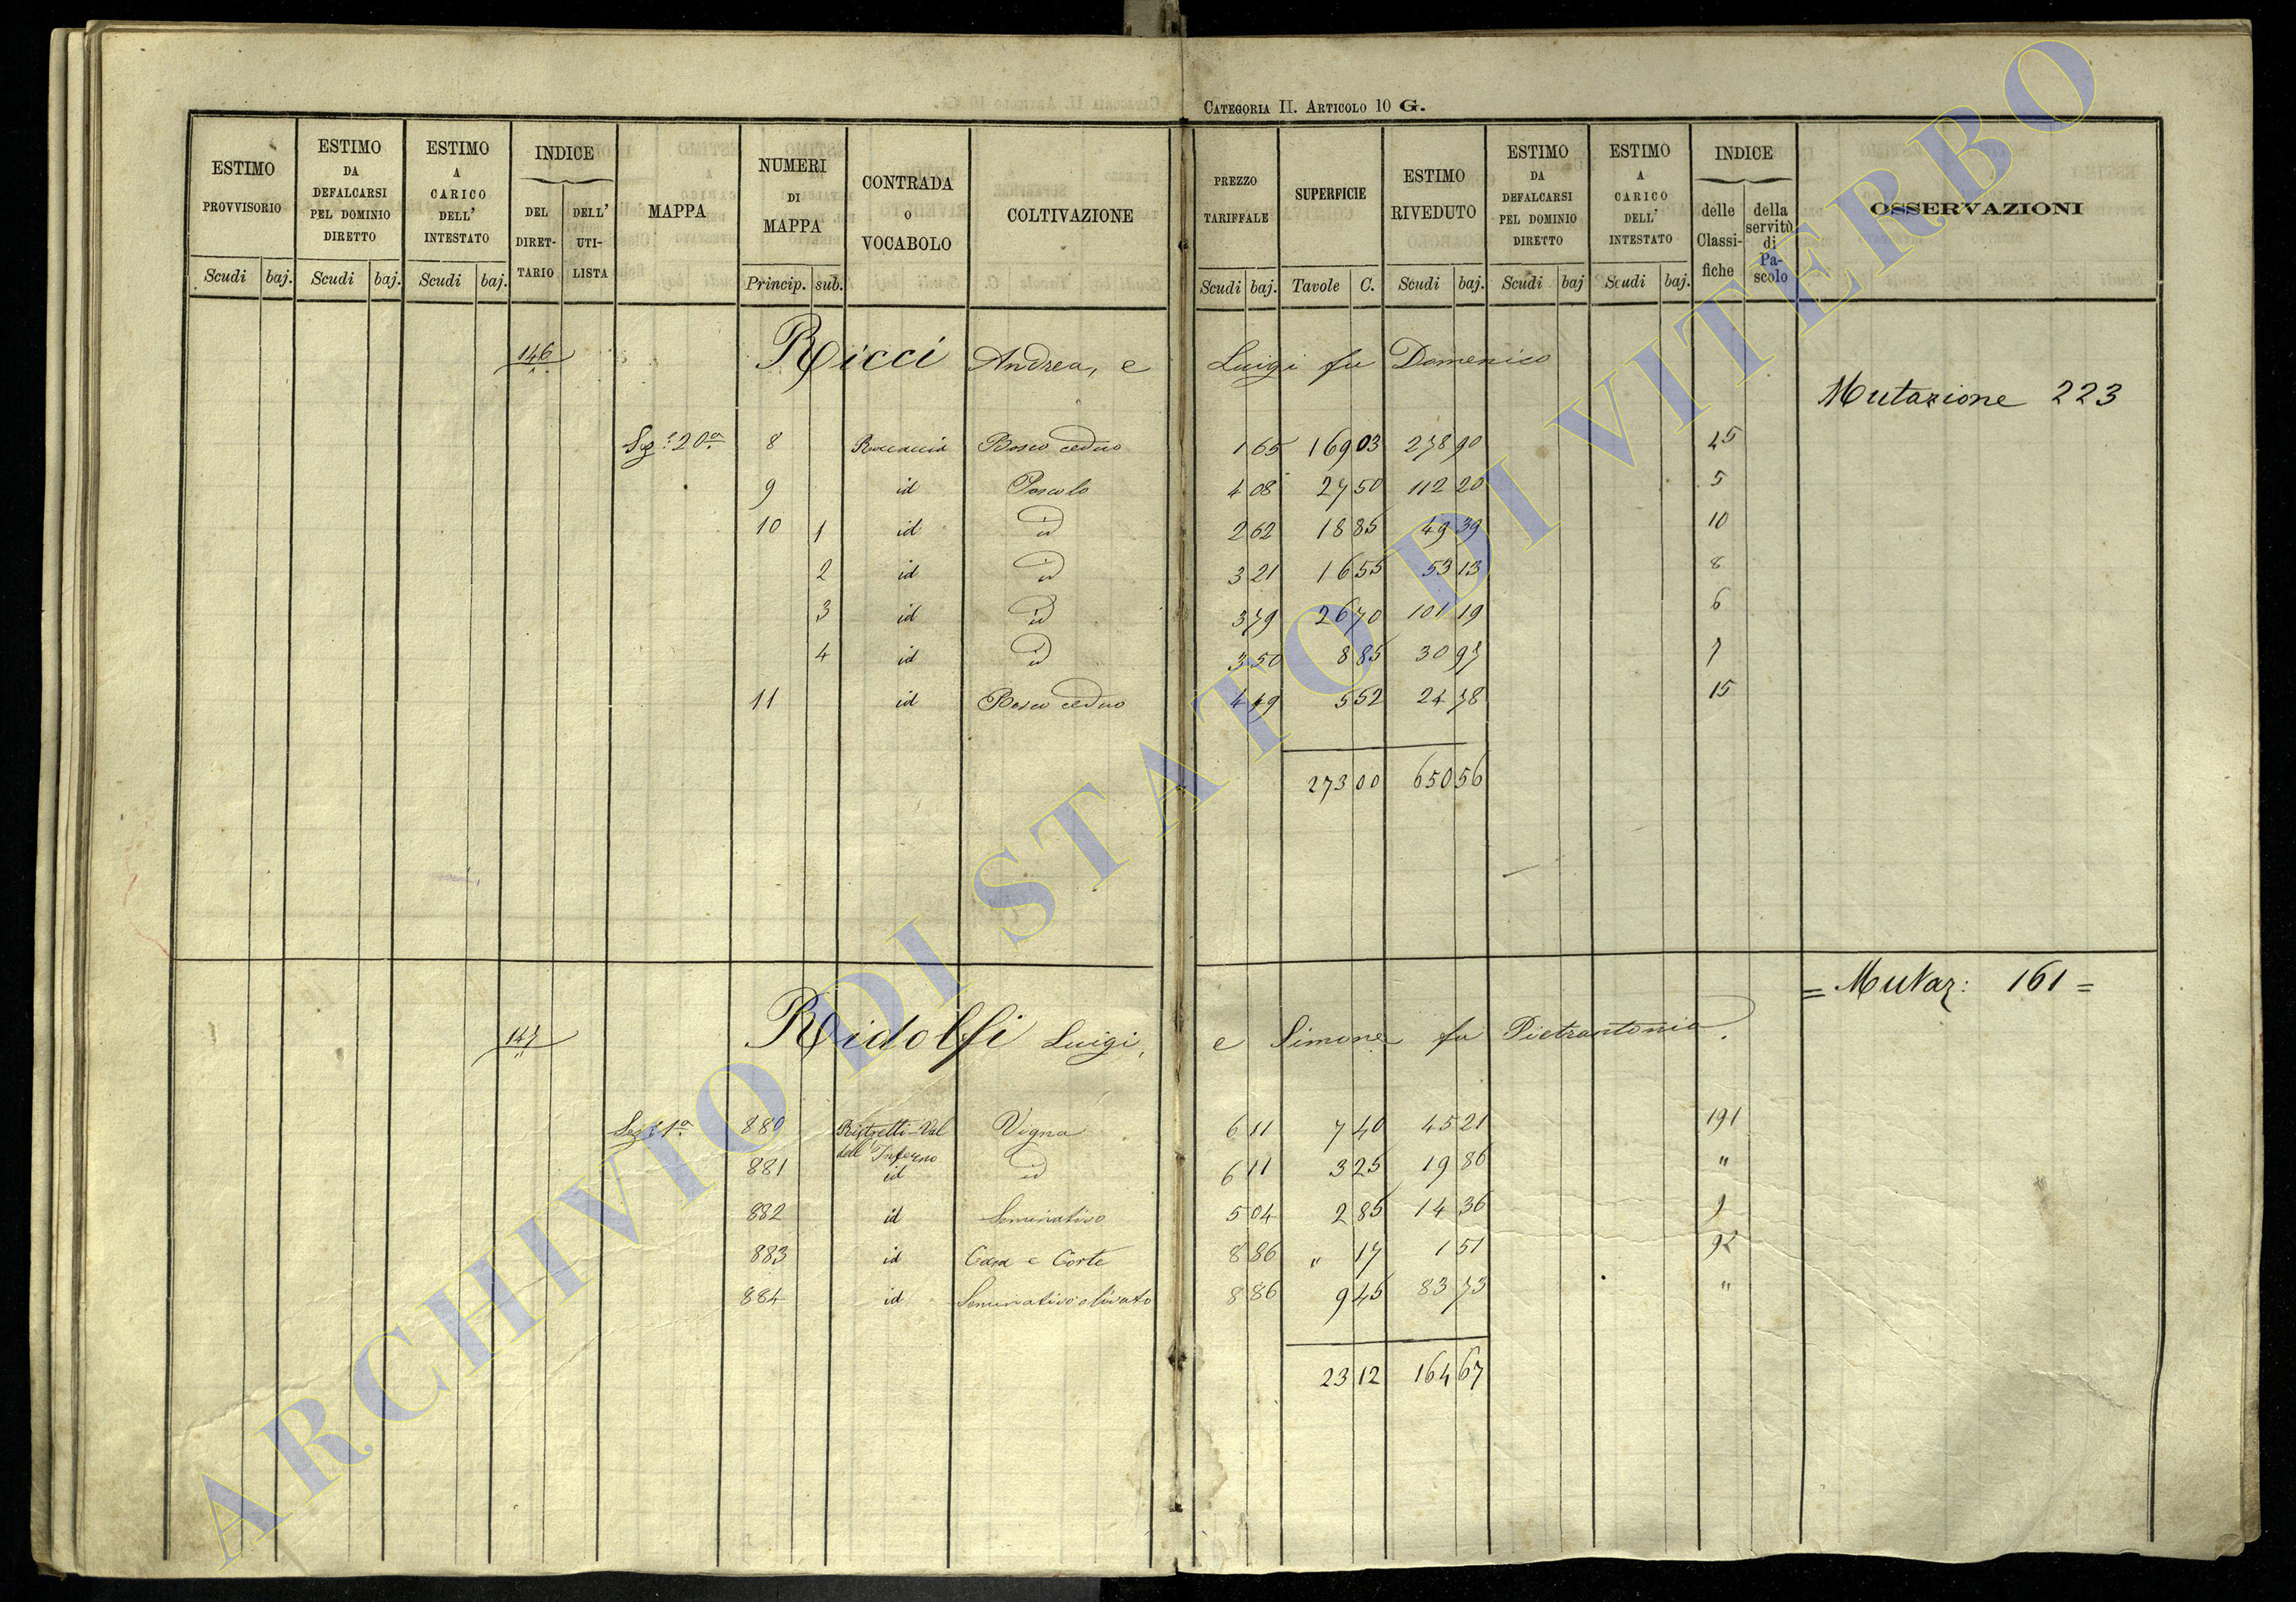 CATEGORIA II. ARTICOLO 10 G.
ESTIMO PROVVISORIO Scudi baj.
ESTIMO DA DEFALCARSI PEL DOMINIO DIRETTO Scudi baj.
ESTIMO A CARICO DELL' INTESTATO Scudi baj.
INDICE DEL DIRET-TARIO DELL' UTI-LISTA
MAPPA
NUMERI DI MAPPA Princip. sub.
CONTRADA O VOCABOLO
COLTIVAZIONE
PREZZO TARIFFALE Scudi baj.
SUPERFICIE Tavole C.
ESTIMO RIVEDUTO Scudi baj.
ESTIMO DA DEFALCARSI PEL DOMINIO DIRETTO Scudi baj
ESTIMO A CARICO DELL' INTESTATO Scudi baj.
INDICE delle Classi-fiche della servitù di Pa-scolo
OSSERVAZIONI
146 Ricci Andrea, e Luigi fu Domenico
Mutazione 223
Sez. 20ª 8 Bosco ceduo 1 65 169 03 278 90 45
9 id Pascolo 4 08 27 50 112 20 5
10 1 id id 2 62 18 85 49 39 10
2 id id 3 21 16 55 53 13 8
3 id id 3 79 26 70 101 19 6
4 id id 3 50 8 85 30 97 7
11 id Bosco ceduo 4 49 5 52 24 78 15
273 00 650 56
= Mutaz: 161 =
147 Ridolfi Luigi, e Simone fu Pietrantonio.
Sez. 1ª 880 Ristretti-Val Vigna 6 11 7 40 45 21 191
dell'Inferno
881 id id 6 11 3 25 19 86 "
882 id Seminativo 5 04 2 85 14 36 9
883 id Casa e Corte 8 86 " 17 1 51 92
884 id Seminativo olivato 8 86 9 45 83 73 "
23 12 164 67
ARCHIVIO DI STATO DI VITERBO